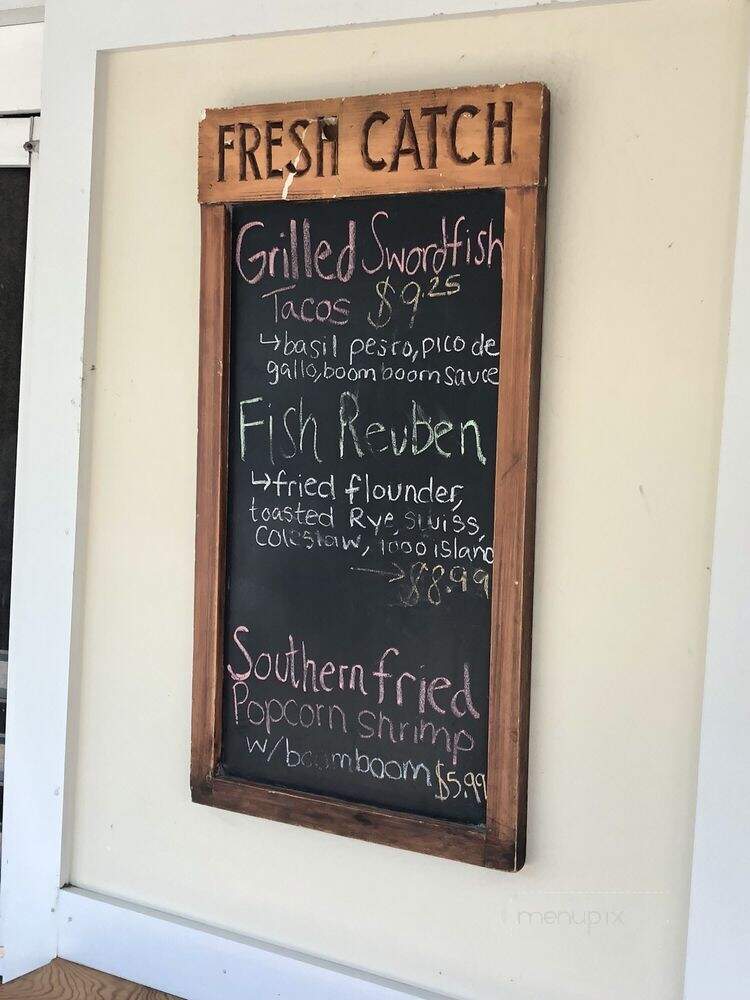 FRESH CATCH
Grilled Swordfish
Tacos $9.25
↳basil pesto, pico de
gallo, boom boom sauce
Fish Reuben
↳fried flounder,
toasted Rye, swiss,
Coleslaw, 1000 island
→$8.99
Southern fried
Popcorn shrimp
w/boomboom $5.99
menupix